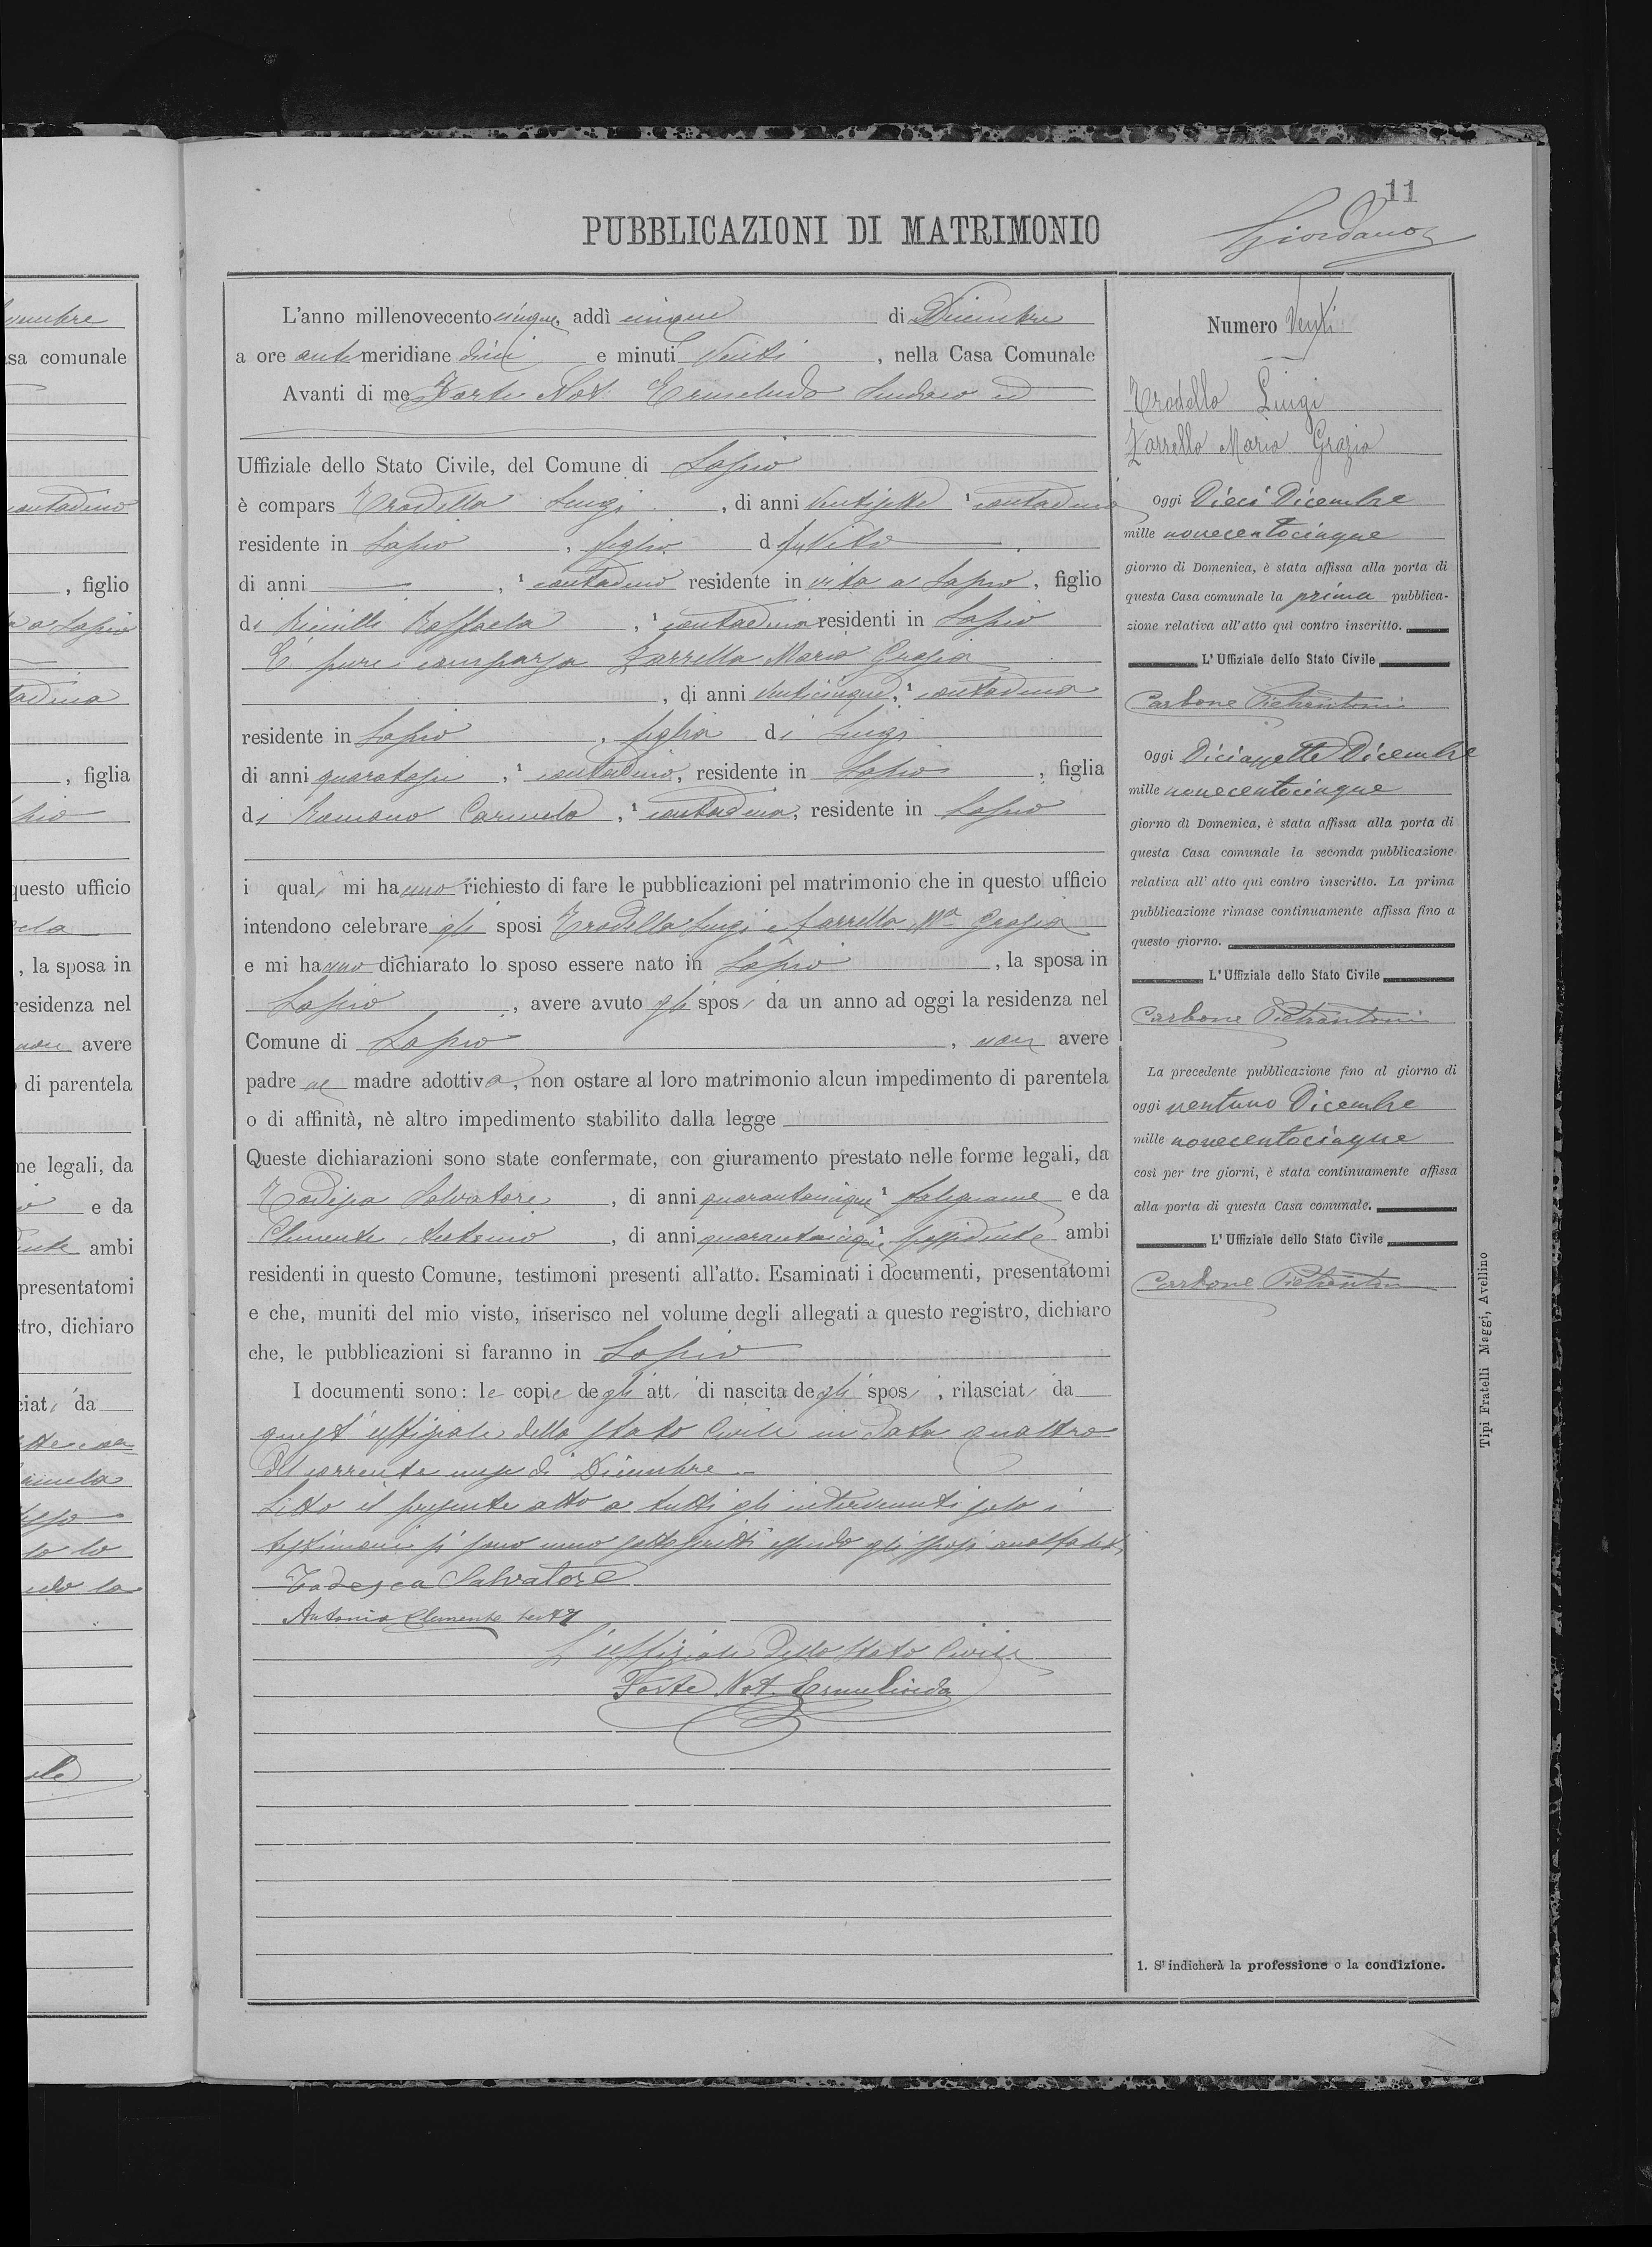 11
Giordano
PUBBLICAZIONI DI MATRIMONIO
L'anno millenovecento cinque, addì cinque di Dicembre
a ore antimeridiane dieci e minuti Venti, nella Casa Comunale
Avanti di me Forte Not. Ermelindo Sindaco ed
Uffiziale dello Stato Civile, del Comune di Lapio
è compars Trodella Luigi, di anni Ventisette 1 contadino
residente in Lapio, figlio d fu Vito
di anni , 1 contadino residente in vita a Lapio, figlio
di Raffaela , 1 contadina residenti in Lapio
È pure comparsa Zarrella Maria Grazia
, di anni Venticinque, 1 contadina
residente in Lapio, figlia di Luigi
di anni quarotasei, 1 contadino, residente in Lapio, figlia
di Romano Carmela, 1 contadina, residente in Lapio
i quali mi hanno richiesto di fare le pubblicazioni pel matrimonio che in questo ufficio
intendono celebrare gli sposi Trodella Luigi e Zarrella Ma Grazia
e mi hanno dichiarato lo sposo essere nato in Lapio, la sposa in
Lapio, avere avuto gli sposi da un anno ad oggi la residenza nel
Comune di Lapio, non avere
padre ne madre adottiva, non ostare al loro matrimonio alcun impedimento di parentela
o di affinità, nè altro impedimento stabilito dalla legge
Queste dichiarazioni sono state confermate, con giuramento prestato nelle forme legali, da
Todesca Salvatore, di anni quarantacinque 1 falegname e da
Clemente Antonio, di anni quarantacinque 1 possidente ambi
residenti in questo Comune, testimoni presenti all'atto. Esaminati i documenti, presentatomi
e che, muniti del mio visto, inserisco nel volume degli allegati a questo registro, dichiaro
che, le pubblicazioni si faranno in Lapio
I documenti sono: le copie degli atti di nascita degli sposi, rilasciati da
quest'uffiziale dello Stato Civile in data quattro
del corrente mese di Dicembre
Letto il presente atto a tutti gli intervenuti solo i
testimoni si sono meco sottoscritti essendo gli sposi analfabeti
Todesca Salvatore
Antonio Clemente
L'uffiziale dello Stato Civile
Forte Not. Ermelindo
Numero Venti
Trodella Luigi
Zarrella Maria Grazia
Oggi Dieci Dicembre
mille novecentocinque
giorno di Domenica, è stata affissa alla porta di
questa Casa comunale la prima pubblica-
zione relativa all'atto quì contro inscritto.
L'Uffiziale dello Stato Civile
Carbone Pietrantonio
Oggi Diciassette Dicembre
mille novecentocinque
giorno di Domenica, è stata affissa alla porta di
questa Casa comunale la seconda pubblicazione
relativa all'atto quì contro inscritto. La prima
pubblicazione rimase continuamente affissa fino a
questo giorno.
L'Uffiziale dello Stato Civile
Carbone Pietrantonio
La precedente pubblicazione fino al giorno di
oggi ventuno Dicembre
mille novecentocinque
così per tre giorni, è stata continuamente affissa
alla porta di questa Casa comunale.
L'Uffiziale dello Stato Civile
Carbone Pietrantonio
Tipi Fratelli Maggi, Avellino
1. S'indicherà la professione o la condizione.